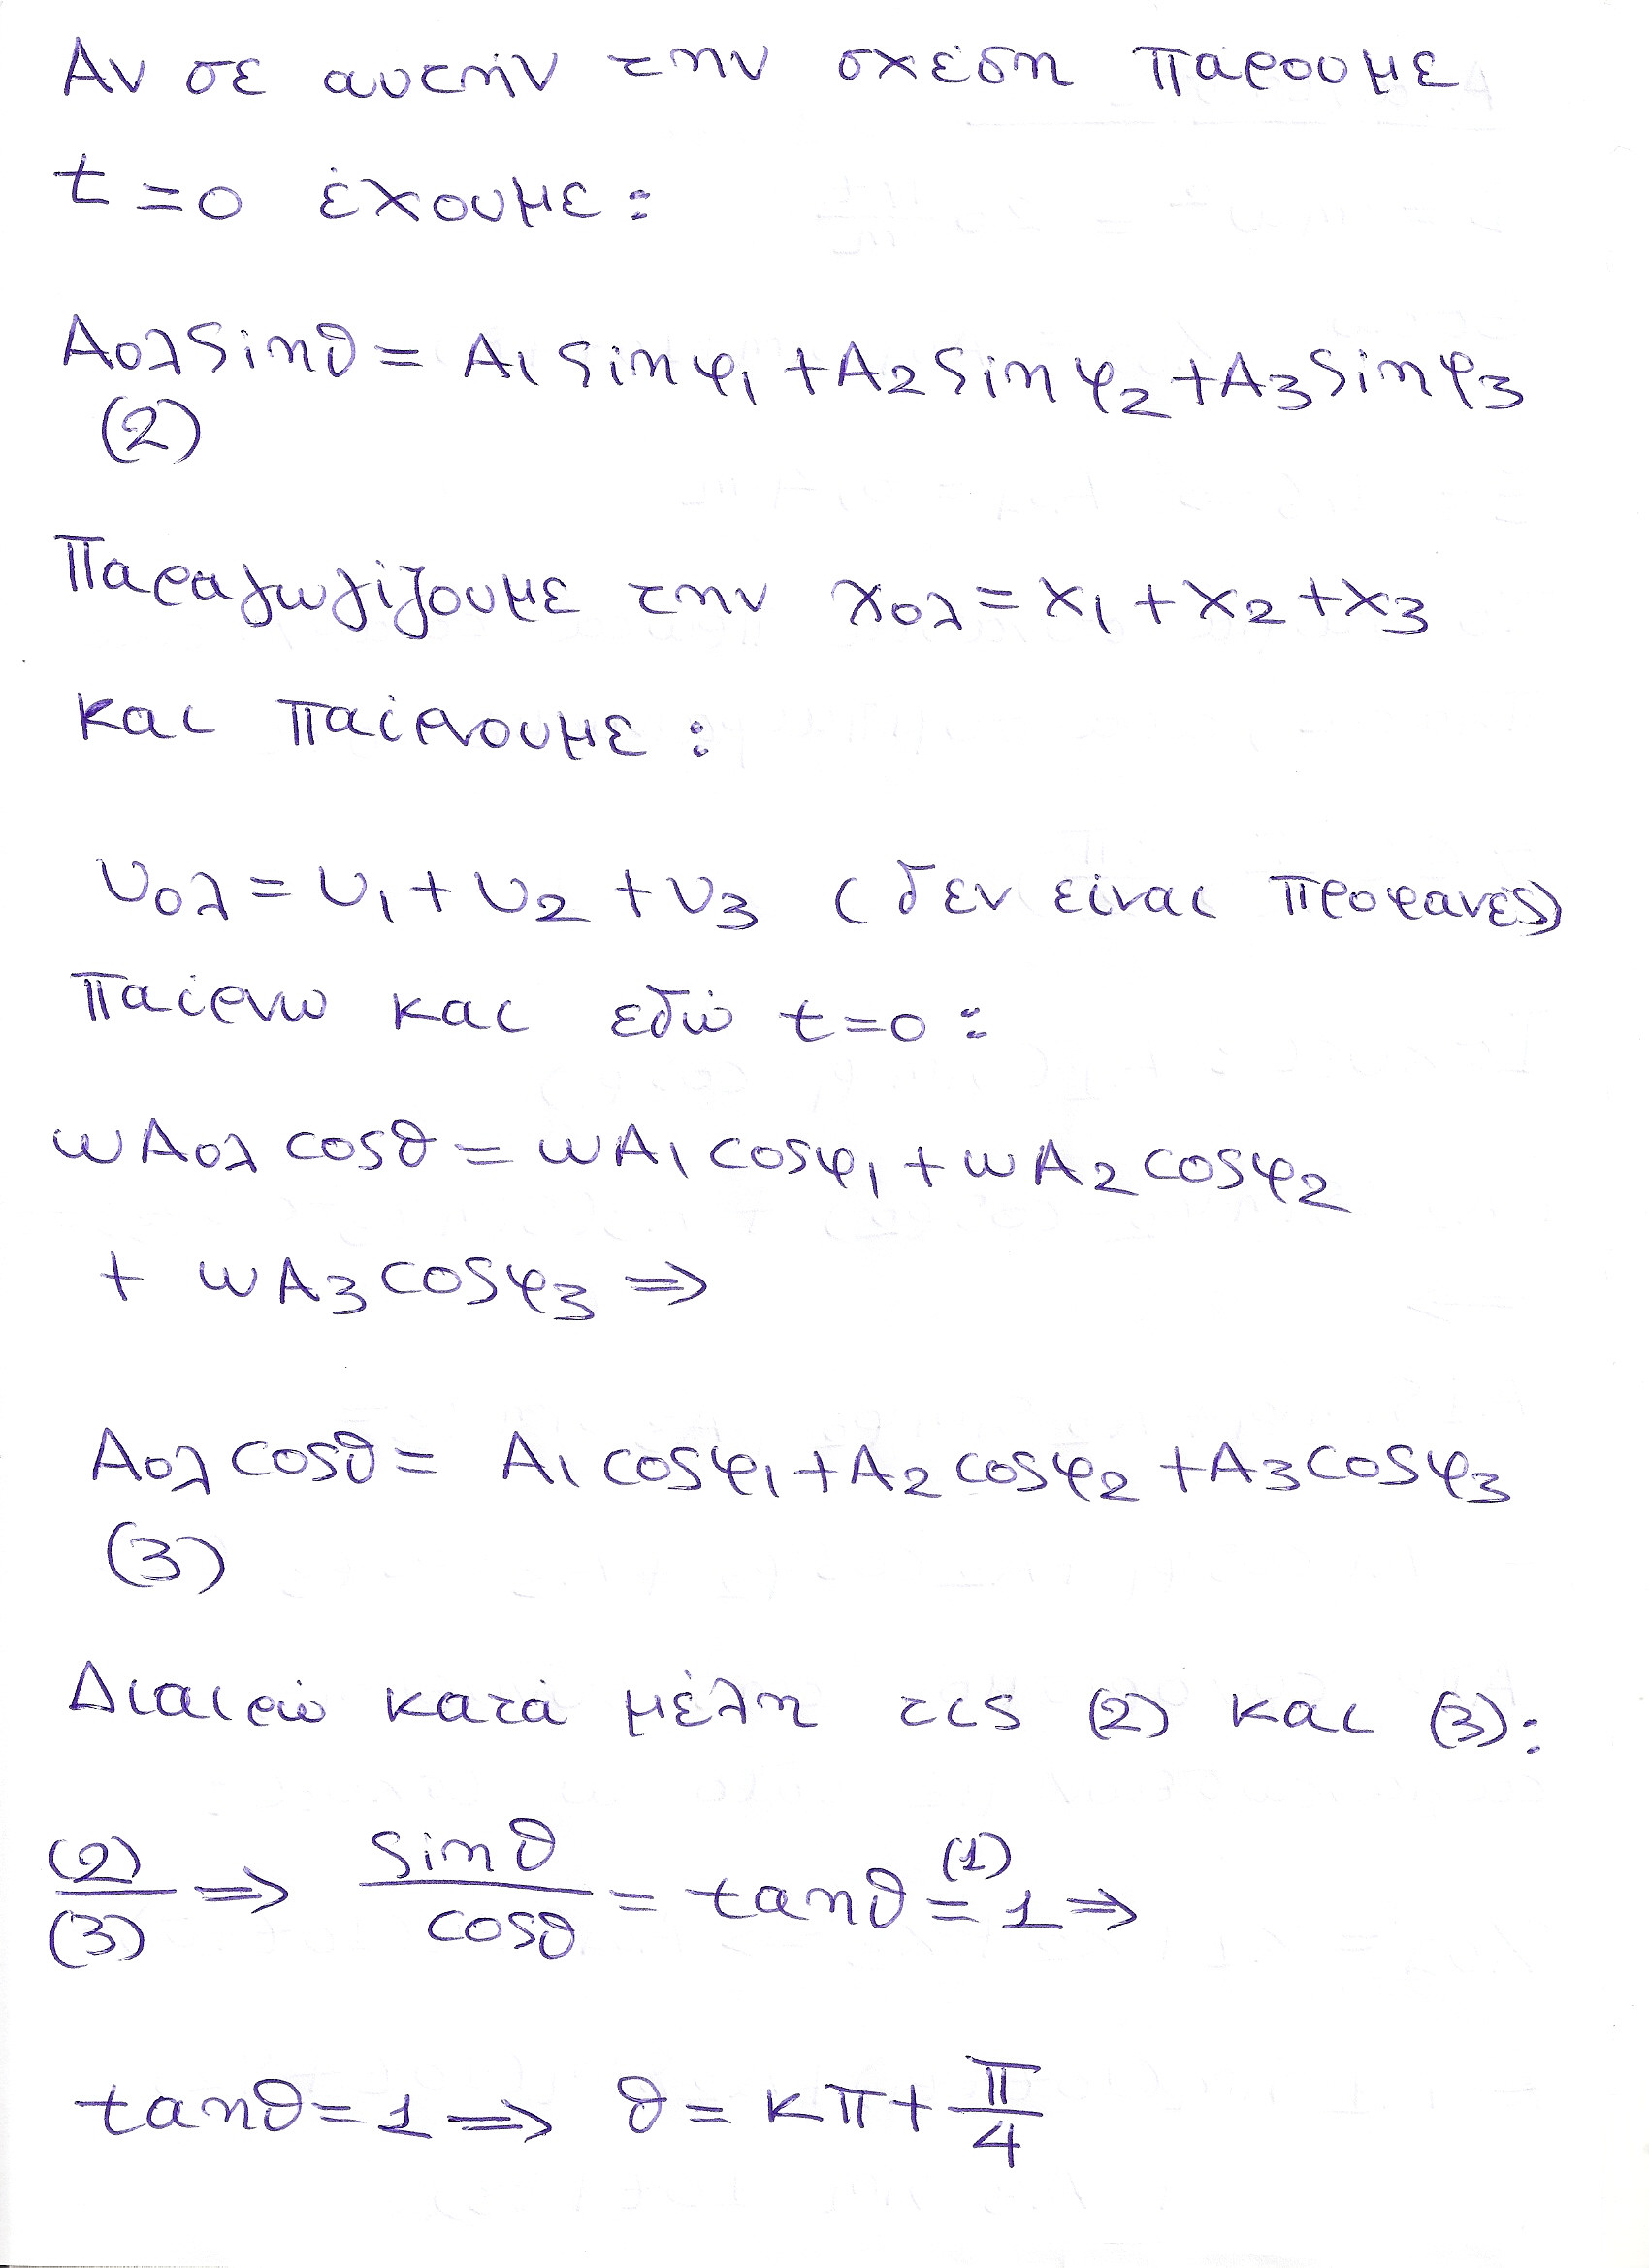 Αν σε αυτήν την σχέση πάρουμε
t=0 έχουμε:
Aολ sinθ = A1 sinφ1 + A2 sinφ2 + A3 sinφ3
(2)
Παραγωγίζουμε την xολ = x1 + x2 + x3
και παίρνουμε:
υολ = υ1 + υ2 + υ3 (δεν είναι προφανές)
Παίρνω και εδώ t=0:
ωAολ cosθ = ωA1 cosφ1 + ωA2 cosφ2
+ ωA3 cosφ3 ⇒
Aολ cosθ = A1 cosφ1 + A2 cosφ2 + A3 cosφ3
(3)
Διαιρώ κατά μέλη τις (2) και (3):
(2)/(3) ⇒ sinθ/cosθ = tanθ =(1) 1 ⇒
tanθ = 1 ⇒ θ = κπ + π/4